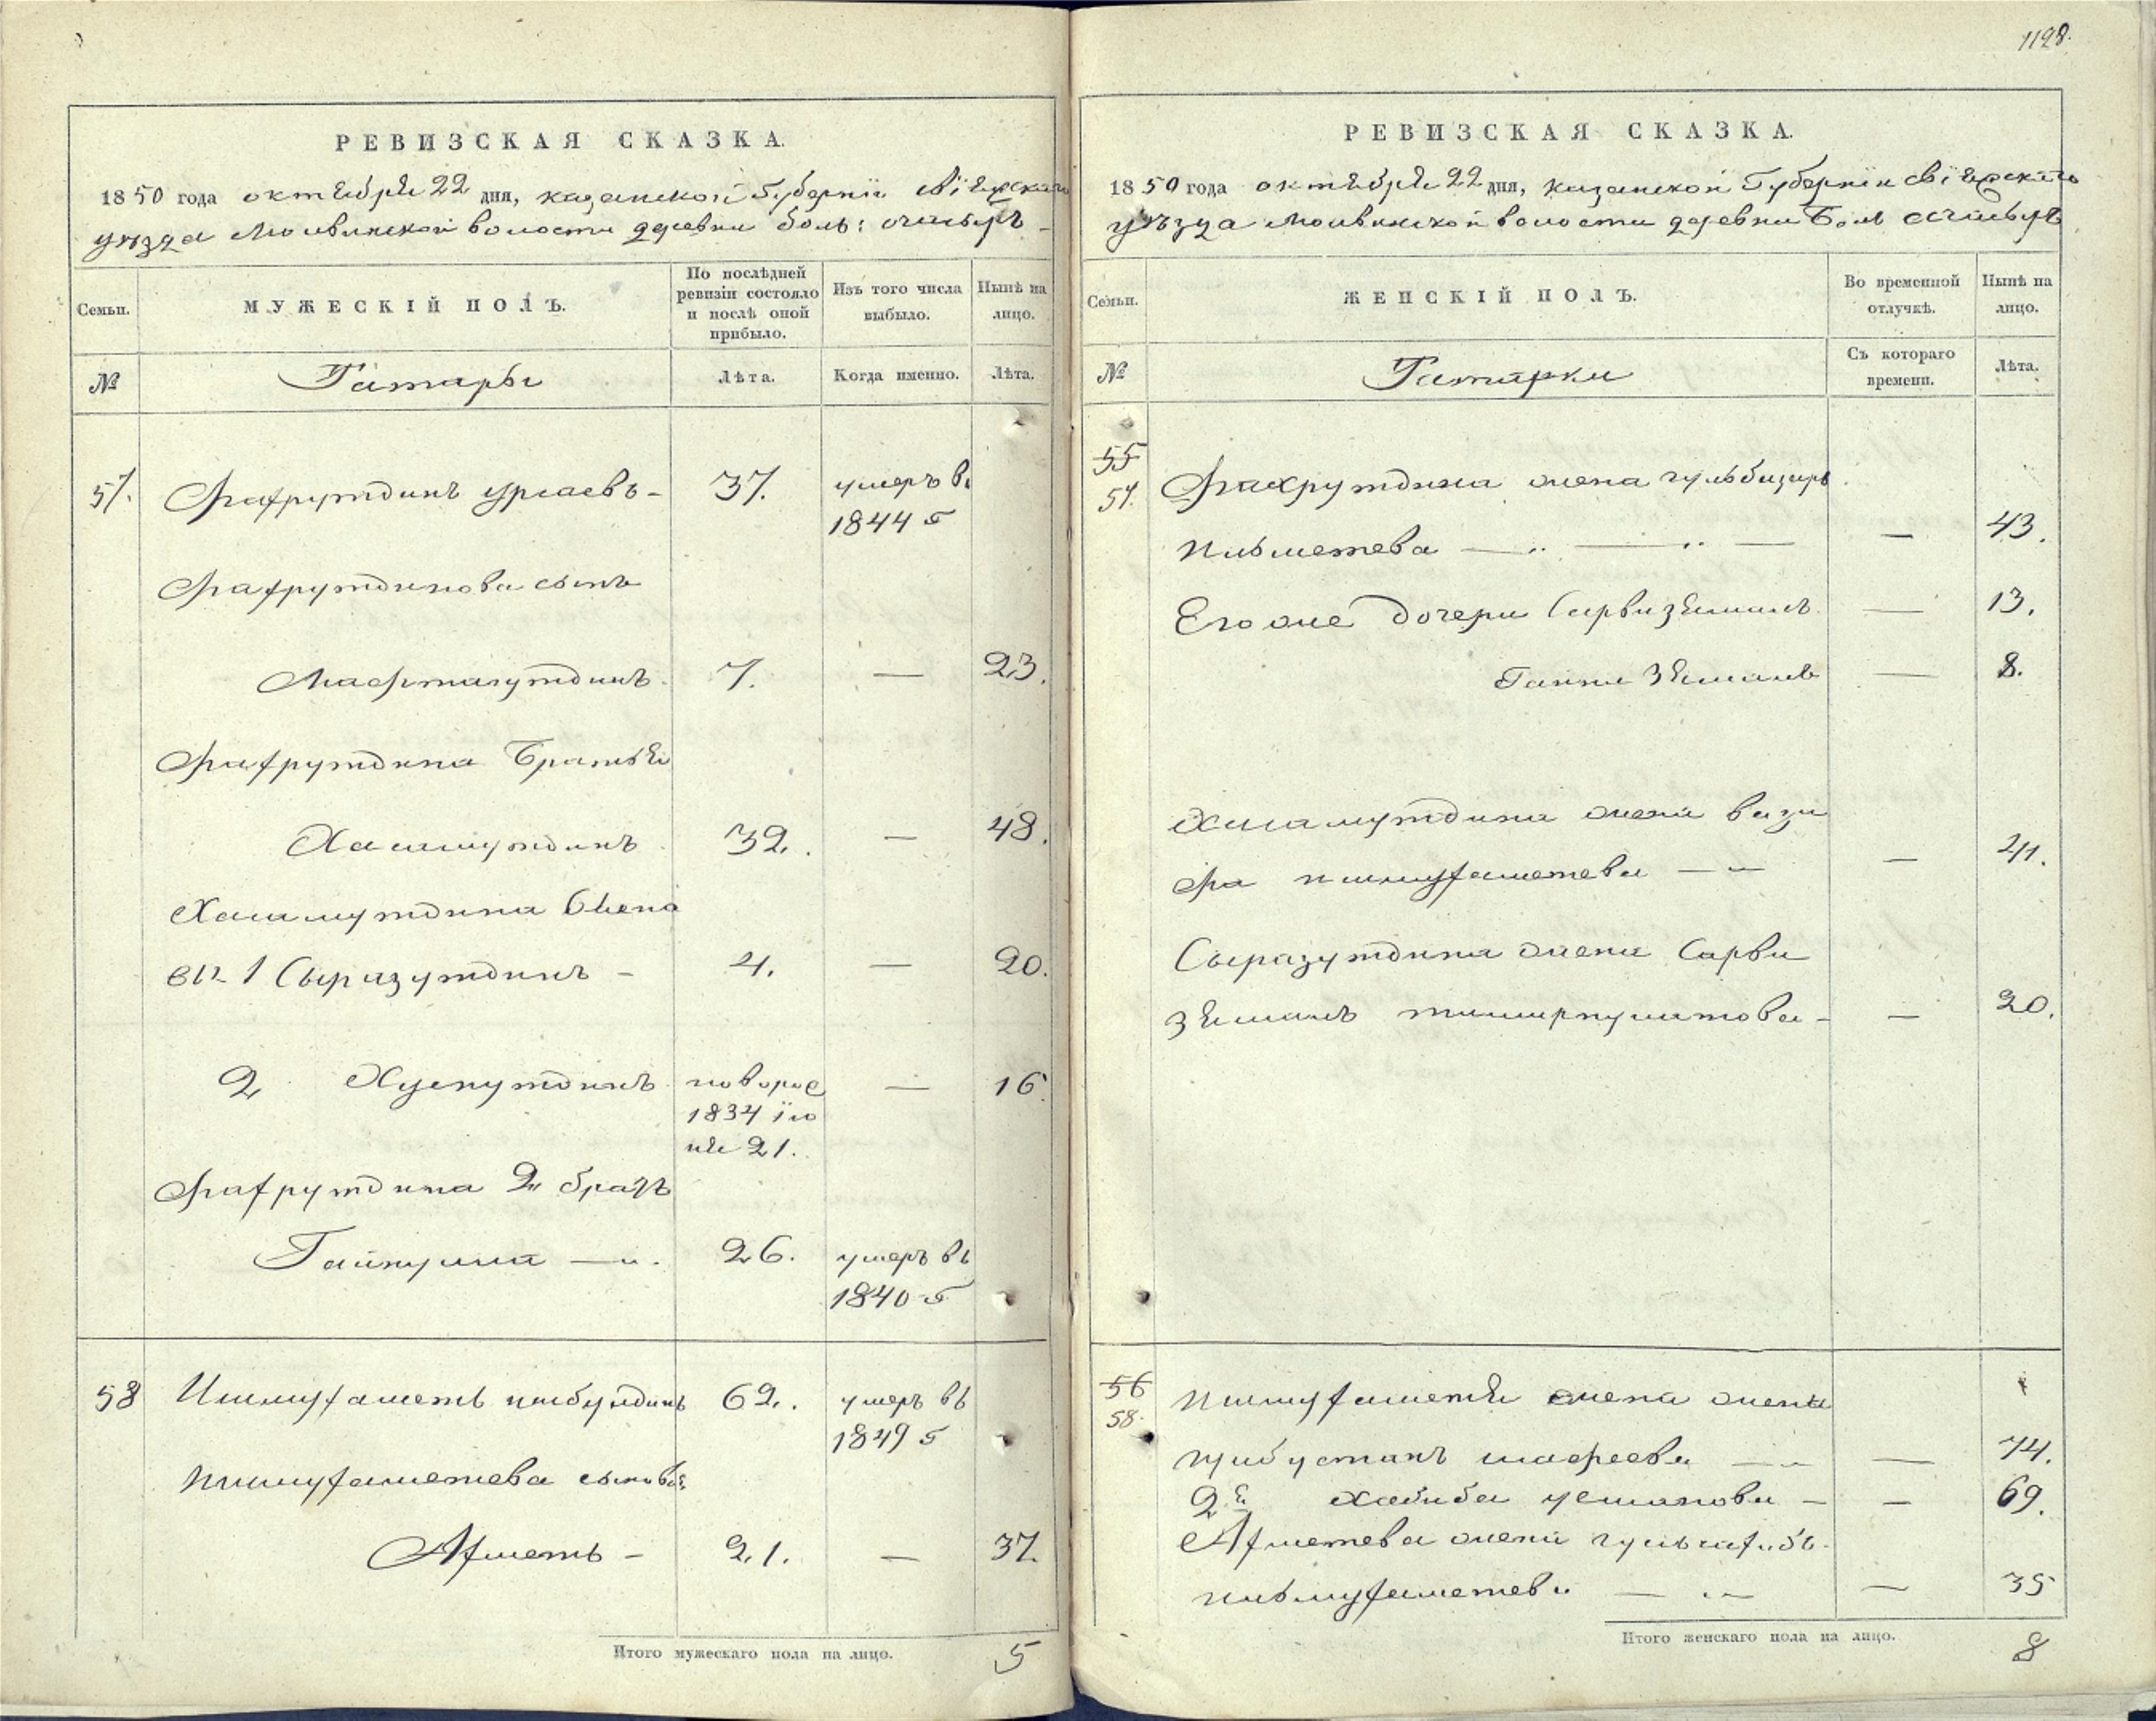 1128.
РЕВИЗСКАЯ СКАЗКА.
1850 года октября 22 дня, казанской Губернiи свiяжскаго
уѣзда Молвинской волости деревни боль: очасыръ
Семьи.
МУЖЕСКІЙ ПОЛЪ.
По послѣдней ревизіи состояло и послѣ оной прибыло.
Изъ того числа выбыло.
Нынѣ на лицо.
№
Татары
Лѣта.
Когда именно.
Лѣта.
57. Фахрутдинъ 37. умеръ въ
1844 г
Фахрутдинова сынъ
Мафтахутдинъ 7. — 23.
Фахрутдина братья
Хисамутдинъ 32. — 48.
Хисамутдина сыно
вья 1 Сыразутдинъ - 4. — 20.
2 Хуснутдинъ новорож
1834 iю — 16.
ня 21.
Фахрутдина 2й братъ
Гайнулла 26. умеръ въ
1840 г
58 Ишмухаметь 62. умеръ въ
1849 г
Ишмухаметева сыновья
Ахметь - 21. — 37.
Итого мужескаго пола на лицо. 5
РЕВИЗСКАЯ СКАЗКА.
1850 года октября 22 дня, казанской Губернiи свiяжскаго
уѣзда Молвинской волости деревни Боль очасыръ
Семьи.
ЖЕНСКІЙ ПОЛЪ.
Во временной отлучкѣ.
Нынѣ на лицо.
№
Татарки
Съ котораго времени.
Лѣта.
55
57. Фахрутдина жена гульбизиръ
Ишметева — 43.
Его же дочери Сарвизямалъ — 13.
Гайни Зямалъ — 8.
Хисамутдина жена вази
фа ишмухаметева — 41.
Сыразутдина жена Сарви
зямалъ тимиркулатова - — 20.
56
58. Ишмухаметя жена жена
шафеева — 74.
2я Хабиба усманова - — 69.
Ахметева жена
ишмухаметева — 35
Итого женскаго пола на лицо. 8